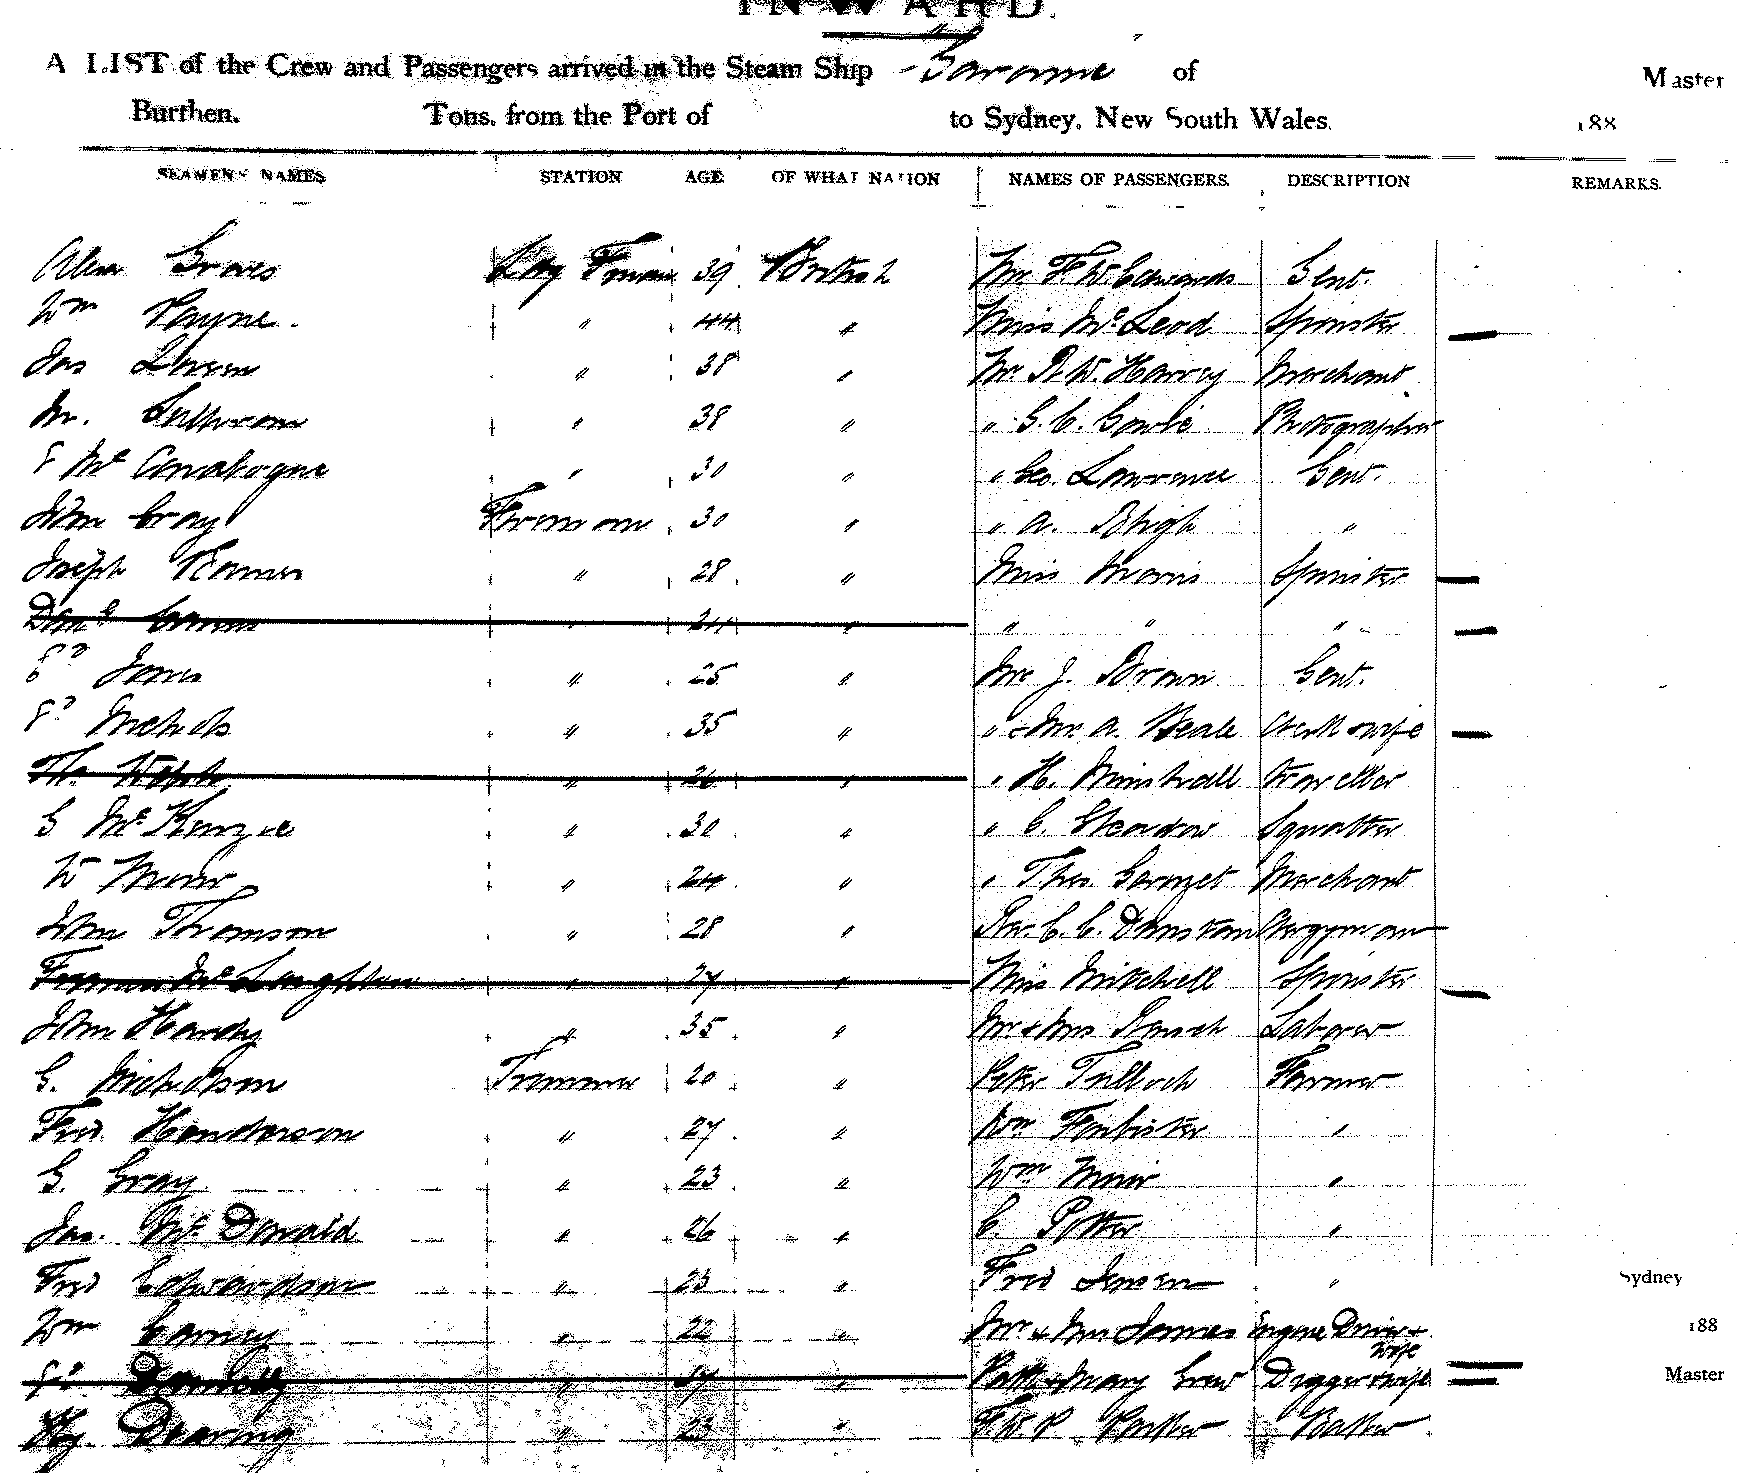 INWARD.
A LIST of the Crew and Passengers arrived in the Steam Ship Garonne of Master
Burthen. Tons. from the Port of to Sydney, New South Wales. 188
SEAMEN'S NAMES STATION AGE OF WHAT NATION NAMES OF PASSENGERS. DESCRIPTION REMARKS.
Alexr Graves Ldg Fireman 39 British Mr F. W. Edwards Gent.
Wm Payne. " 44 " Miss McLeod Spinster
Jas " 38 " Mr R. W. Harvey Merchant
" 38 " " G. C. Photographer
Mc " 30 " " Geo. Lawrence Gent.
John Gray Fireman 30 " " A. Bligh "
Joseph " 28 " Miss Morris Spinster
" " " " "
Jones " 25 " Mr J. Brown Gent.
Nichols " 35 " " & Mrs A. Beale Clerk & wife
" 26 " " H. Minshall Traveller
G McKenzie " 30 " " C. Squatter
W Muir " 24 " " Thos Garnet Merchant
John Thomson " 28 " Rev. C. C. Dunstan Clergyman
McLaughlan " 27 " Miss Mitchell Spinster
John Hardy " 35 " Mr & Mrs Laborer
G. Nicholson Trimmer 20 " Peter Tulloch Farmer
Fred Henderson " 27 " Wm Forbister "
G. Gray " 23 " Wm Muir "
Jas. McDonald " 26 " C. Potter "
Fred Edwardson " 23 " Fred Jensen " Sydney
Wm " 22 " Mr & Mrs James Engine Driver & wife 188
Donnelly " " Patk & Mary Digger & wife Master
Hy. Dearing " 23 " F. W. P Baker